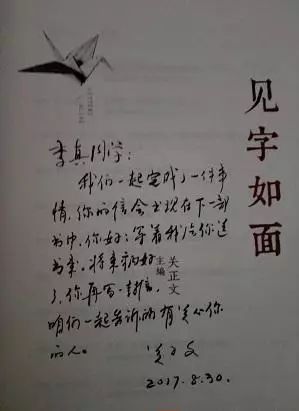 见字如面
关正文
主编
李真同学：
我们一起完成了一件事
情，你的信会出现在下一部
书中，你好好等着我给你送
书来。将来病好
了，你再写一封信，
咱们一起告诉所有关心你
的人。
关正文
2017.8.30.